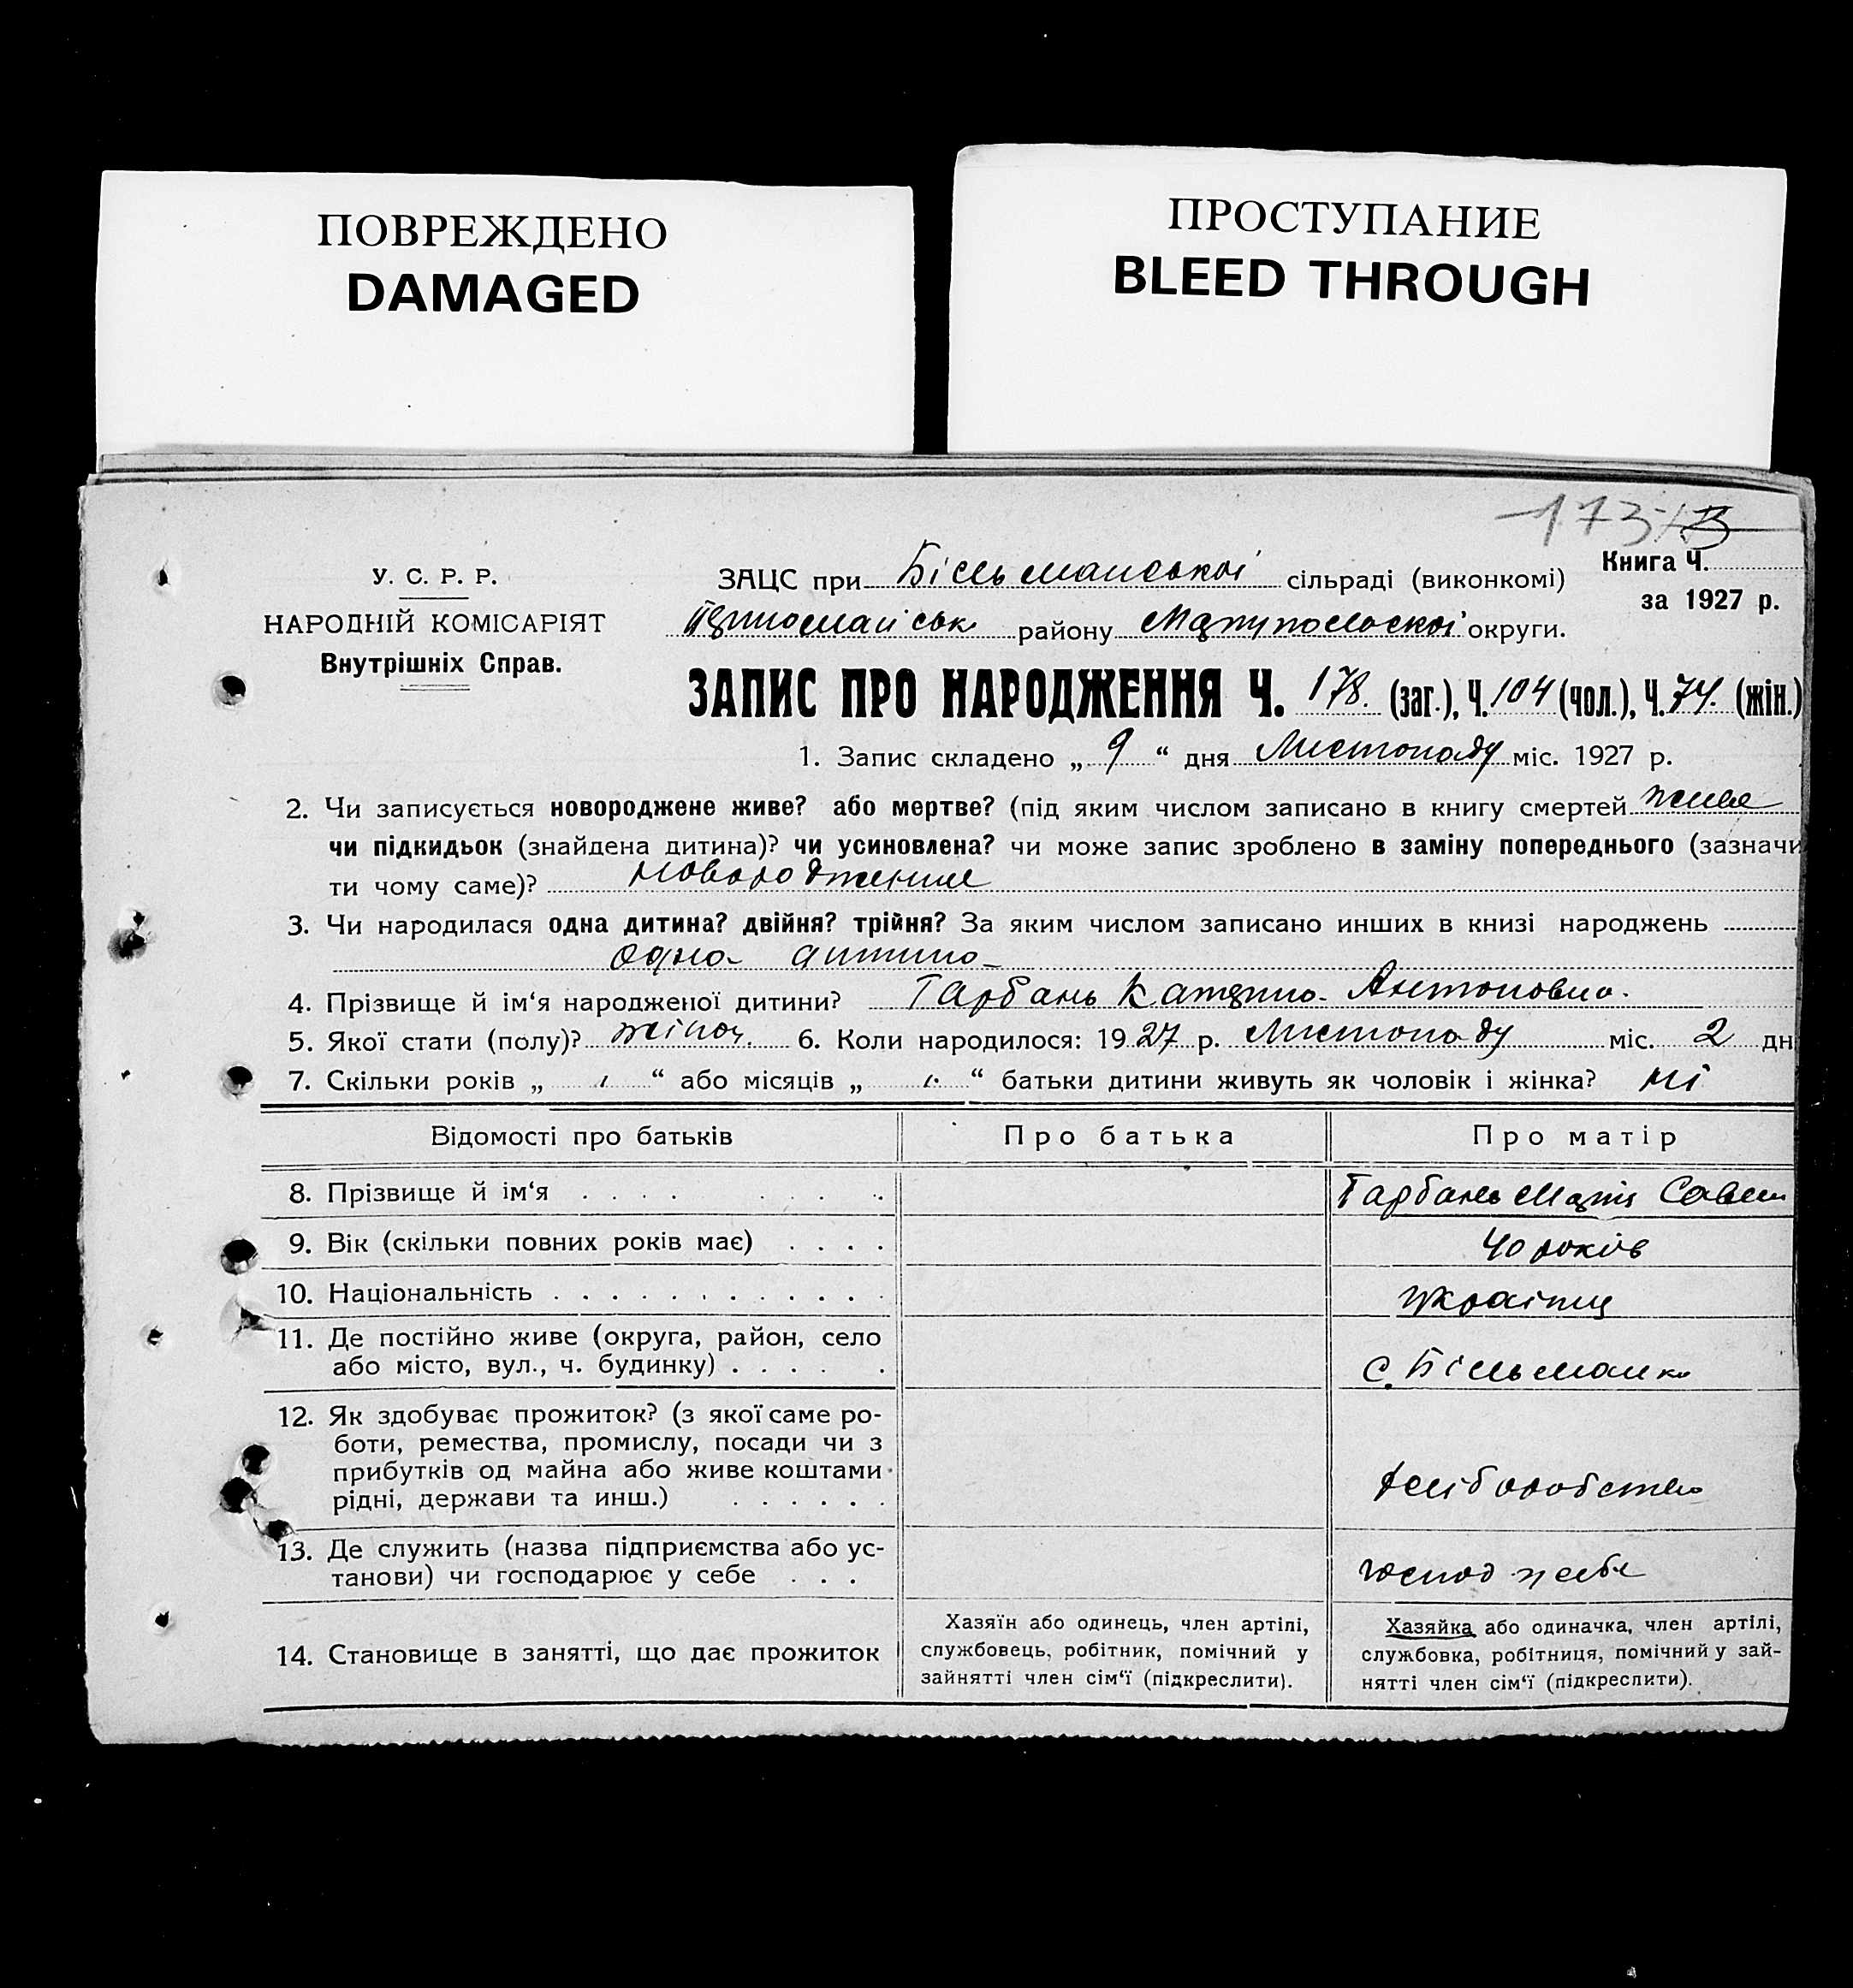 ПОВРЕЖДЕНО
DAMAGED
ПРОСТУПАНИЕ
BLEED THROUGH
173
У. С. Р. Р.
НАРОДНІЙ КОМІСАРІЯТ
Внутрішніх Справ.
Книга Ч.
за 1927 р.
ЗАЦС при Більманської сільраді (виконкомі)
району Маріупольської округи.
ЗАПИС ПРО НАРОДЖЕННЯ Ч. 178. (заг.), Ч. 104 (чол.), Ч. 74. (жін.)
1. Запис складено „ 9 “ дня Листопаду міс. 1927 р.
2. Чи записується новороджене живе? або мертве? (під яким числом записано в книгу смертей живе
чи підкидьок (знайдена дитина)? чи усиновлена? чи може запис зроблено в заміну попереднього (зазначи
ти чому саме)? новороджене
3. Чи народилася одна дитина? двійня? трійня? За яким числом записано инших в книзі народжень
одна дитина
4. Прізвище й ім‘я народженої дитини? Гарбань Катерина Антоновна.
5. Якої стати (полу)? жіноч. 6. Коли народилося: 1927 р. Листопаду міс. 2 дн
7. Скільки років „ “ або місяців „ “ батьки дитини живуть як чоловік і жінка? ні
Відомості про батьків
Про батька
Про матір
8. Прізвище й ім‘я Гарбань Марія
9. Вік (скільки повних років має) 40 років
10. Національність Українц
11. Де постійно живе (округа, район, село
або місто, вул., ч. будинку) с. Більманка
12. Як здобуває прожиток? (з якої саме ро-
боти, ремества, промислу, посади чи з
прибутків од майна або живе коштами
рідні, держави та инш.) хліборобство
13. Де служить (назва підприємства або ус-
танови) чи господарює у себе господ у себе
14. Становище в занятті, що дає прожиток
Хазяїн або одинець, член артілі,
службовець, робітник, помічний у
зайнятті член сім‘ї (підкреслити).
Хазяйка або одиначка, член артілі,
службовка, робітниця, помічний у зай-
нятті член сім‘ї (підкреслити).